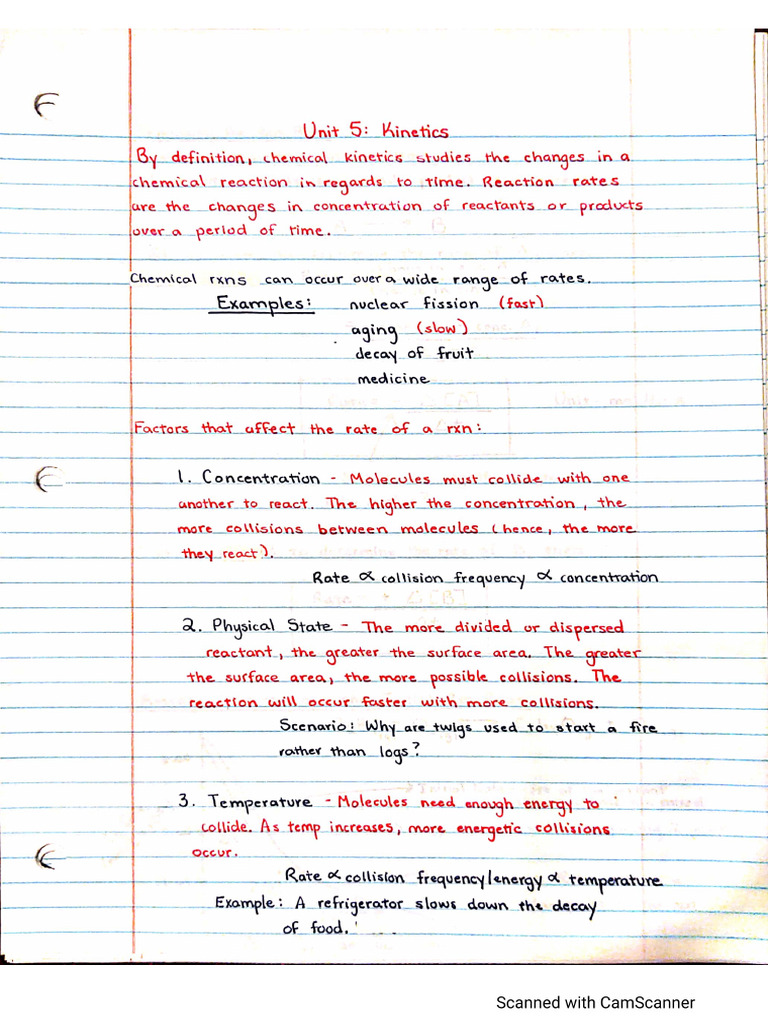 Unit 5: Kinetics
By definition, chemical kinetics studies the changes in a
chemical reaction in regards to time. Reaction rates
are the changes in concentration of reactants or products
over a period of time.
Chemical rxns can occur over a wide range of rates.
Examples: nuclear fission (fast)
aging (slow)
decay of fruit
medicine
Factors that affect the rate of a rxn:
1. Concentration - Molecules must collide with one
another to react. The higher the concentration, the
more collisions between molecules (hence, the more
they react).
Rate ∝ collision frequency ∝ concentration
2. Physical State - The more divided or dispersed
reactant, the greater the surface area. The greater
the surface area, the more possible collisions. The
reaction will occur faster with more collisions.
Scenario: Why are twigs used to start a fire
rather than logs?
3. Temperature - Molecules need enough energy to
collide. As temp increases, more energetic collisions
occur.
Rate ∝ collision frequency/energy ∝ temperature
Example: A refrigerator slows down the decay
of food.
Scanned with CamScanner